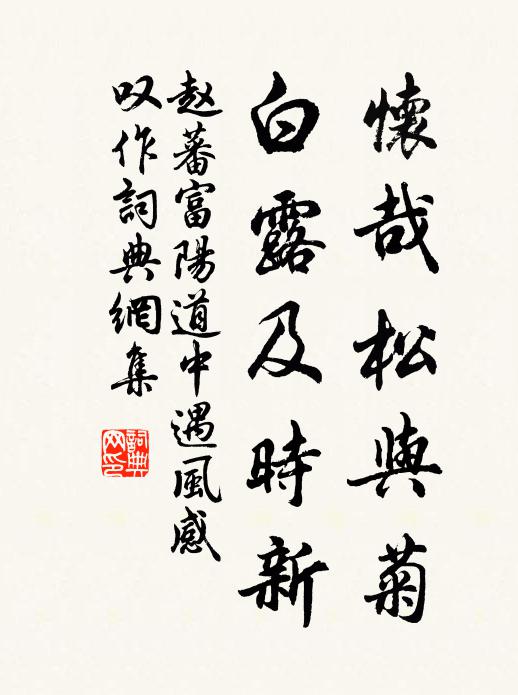 懷哉松與菊
白露及時新
赵蕃富陽道中遇風感
叹作詞典網集
詞典网印